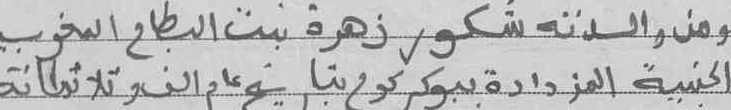 ومن والدته شكور زهرة بنت البطاح المغربية
الجنسية المزدادة ببوكركوح بتاريخ عام الف وثلاثمائة